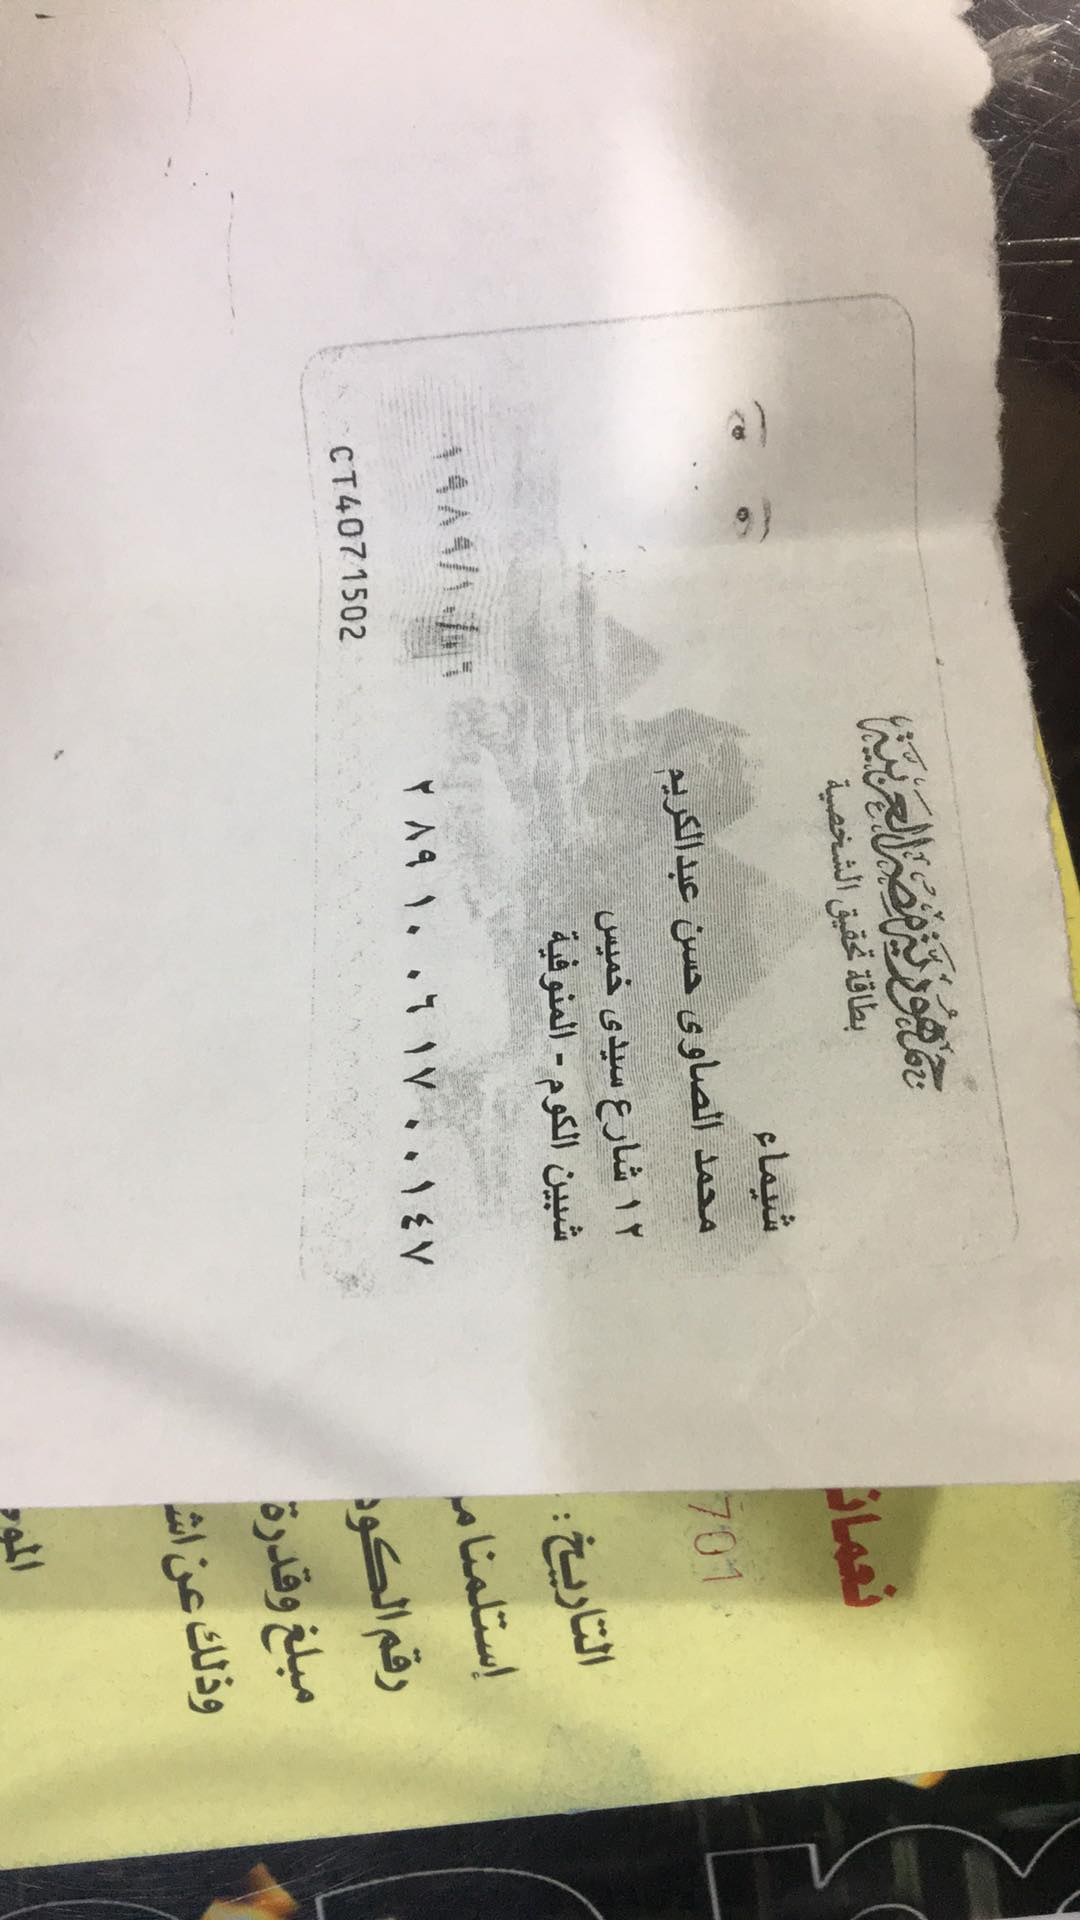 جمهورية مصر العربية
بطاقة تحقيق الشخصية
شيماء
محمد الصاوى حسن عبدالكريم
١٢ شارع سيدى خميس
شبين الكوم - المنوفية
٢٨٩١٠٠٦١٧٠٠١٤٧
١٩٨٩/١٠/٠٦
CT4071502
701
التاريخ :
إستلمنا
رقم الكود
مبلغ وقدرة
وذلك عن